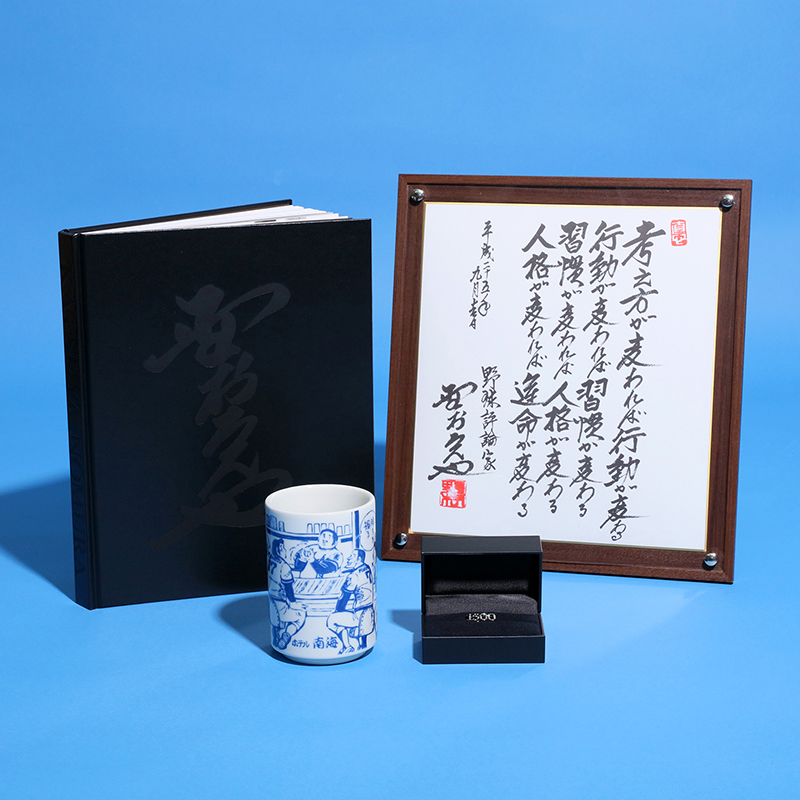 考え方が変われば行動が変わる
行動が変われば習慣が変わる
習慣が変われば人格が変わる
人格が変われば運命が変わる
平成二十五年
九月吉日
野球評論家
ホテル 南海
1500